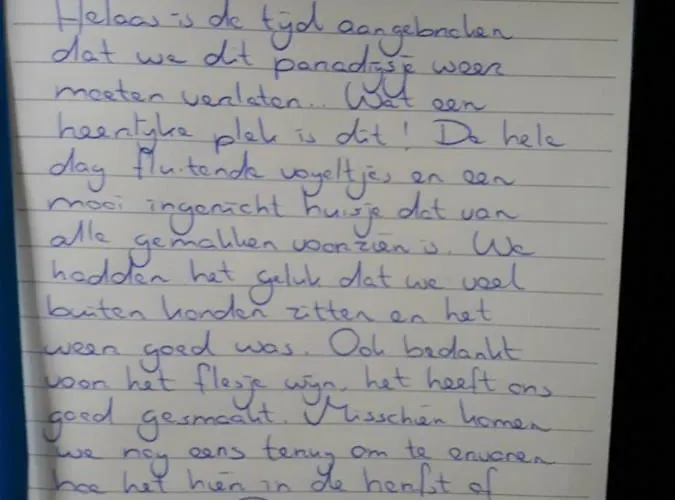 Helaas is de tijd aangebroken
dat we dit paradijsje weer
moeten verlaten... Wat een
heerlijke plek is dit! De hele
dag fluitende vogeltjes en een
mooi ingericht huisje dat van
alle gemakken voorzien is. We
hadden het geluk dat we veel
buiten konden zitten en het
weer goed was. Ook bedankt
voor het flesje wijn, het heeft ons
goed gesmaakt. Misschien komen
we nog eens terug om te ervaren
hoe het hier in de herfst of